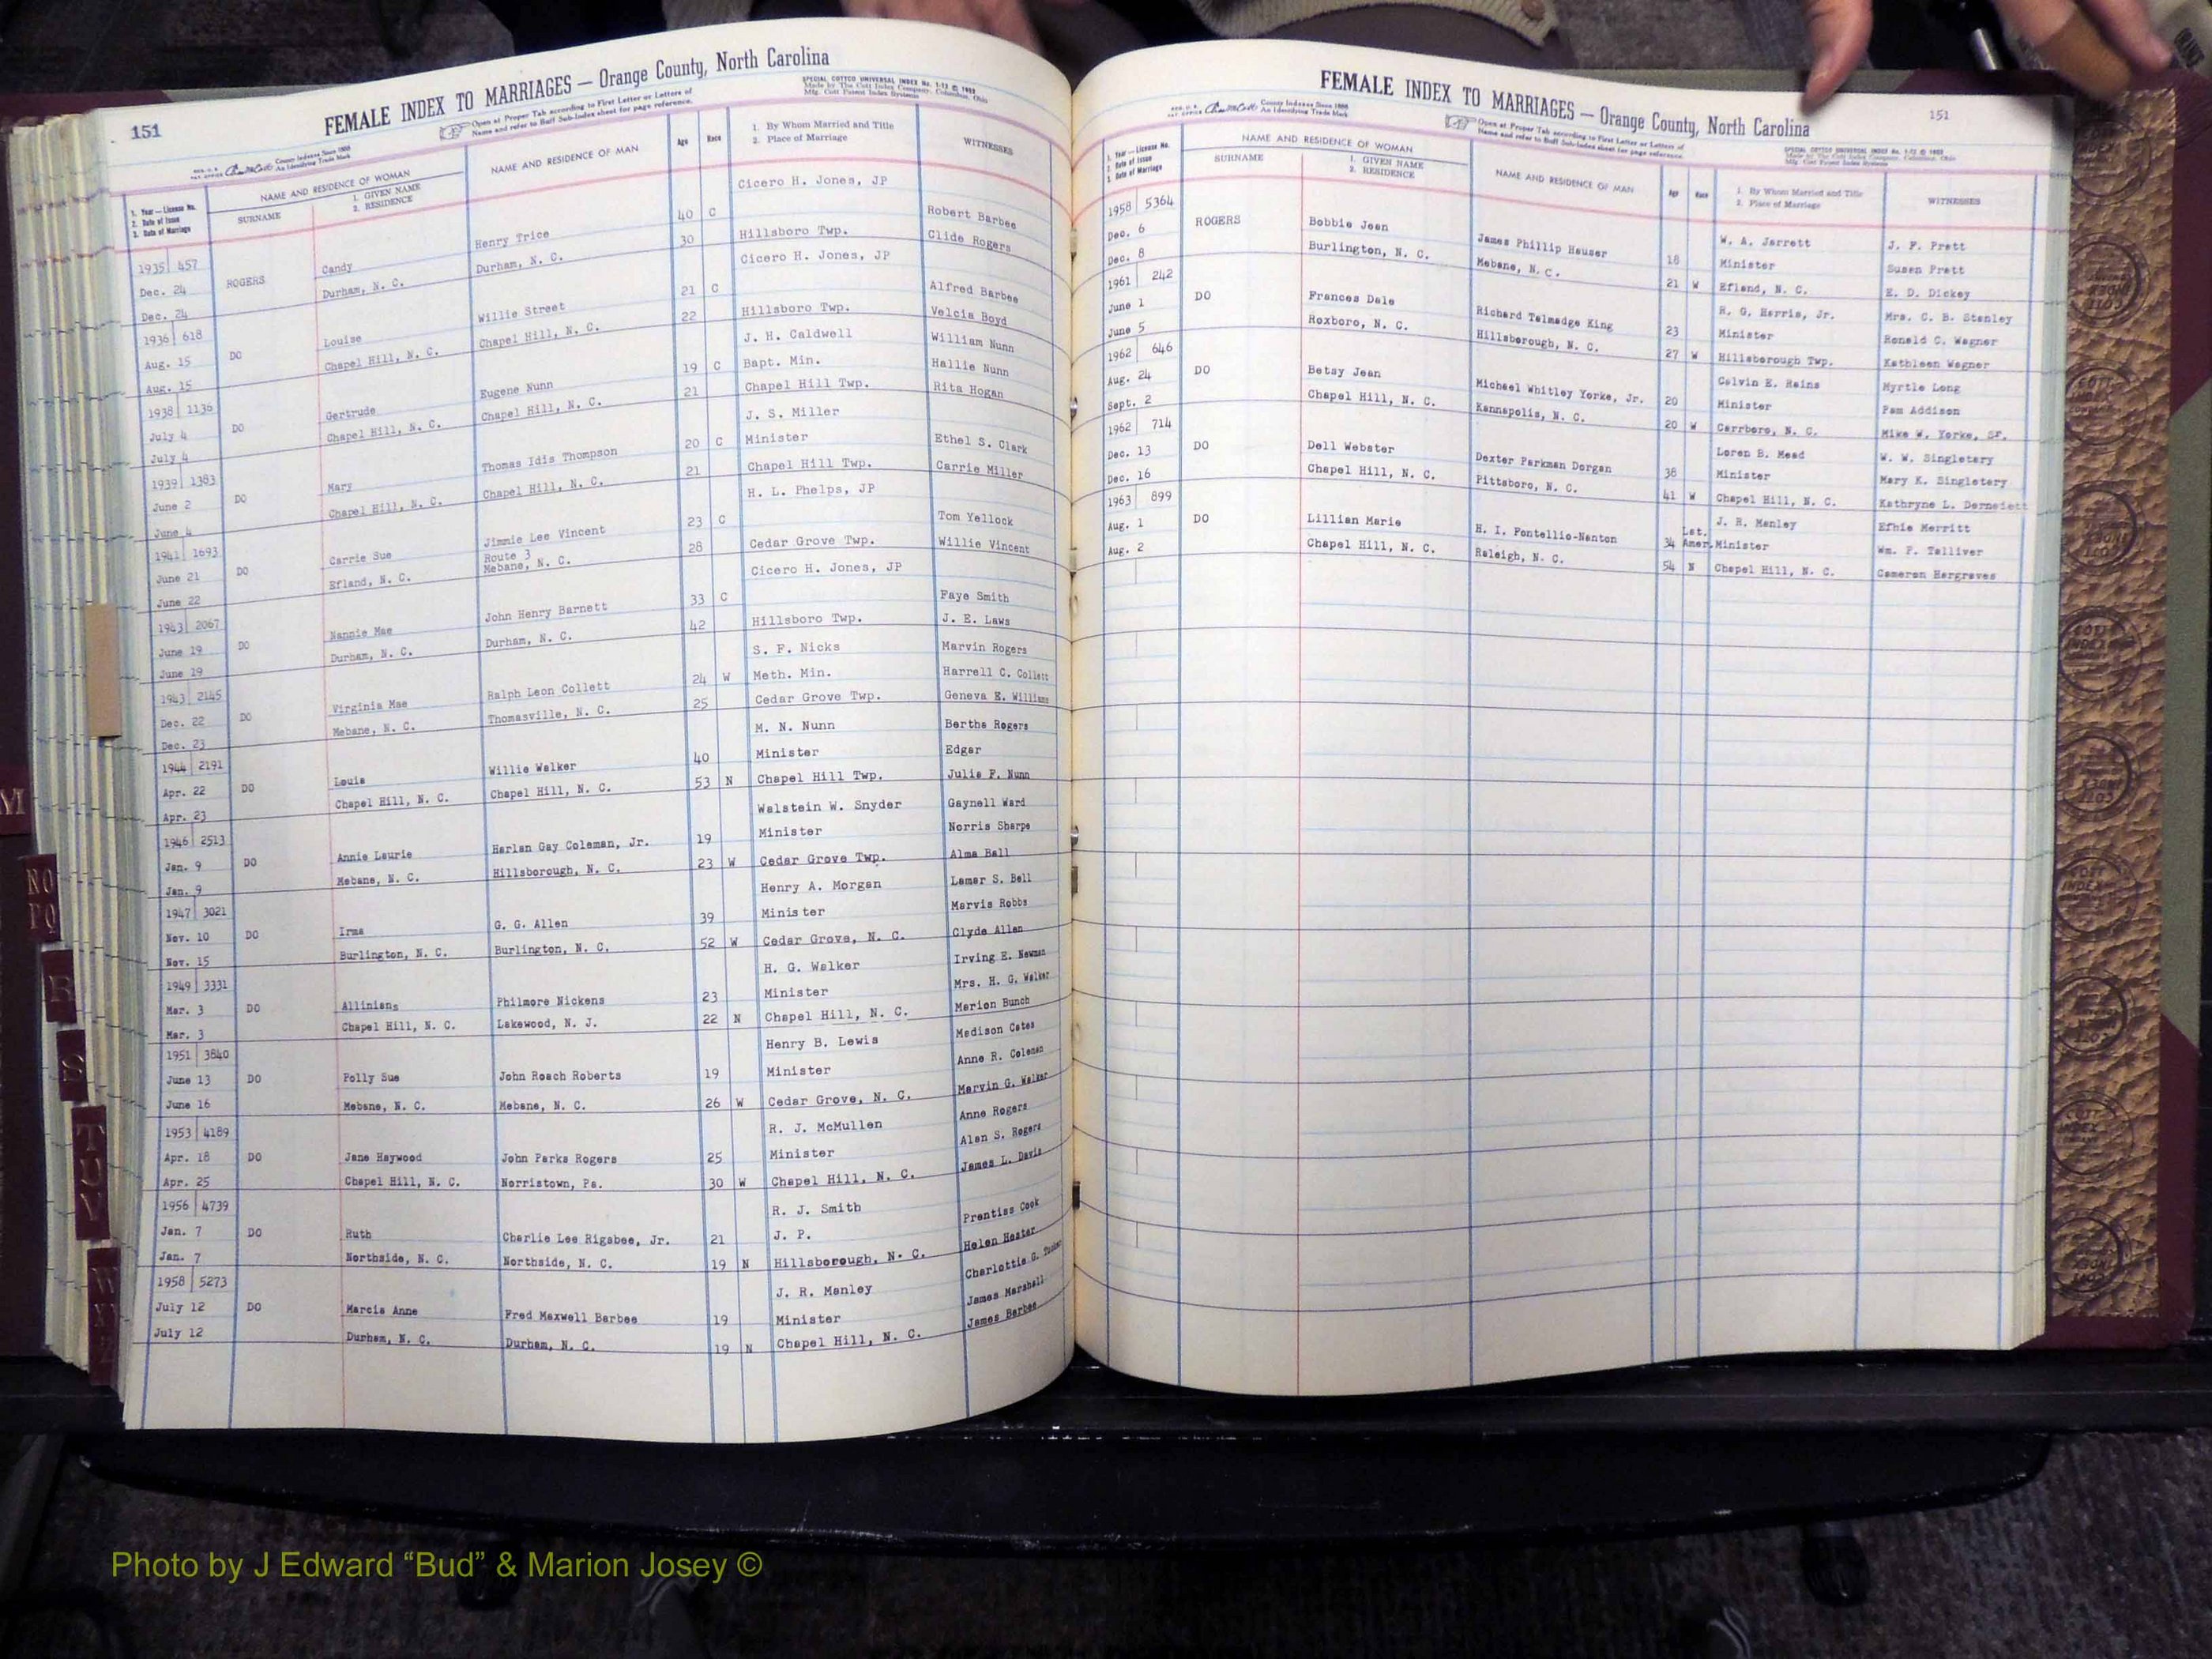 151
FEMALE INDEX TO MARRIAGES — Orange County, North Carolina
Open at Proper Tab according to First Letter or Letters of
Name and refer to Buff Sub-Index sheet for page reference.
SPECIAL COTTCO UNIVERSAL INDEX No. 1-12 © 1952
Made by The Cott Index Company, Columbus, Ohio
Mfg. Cott Patent Index Systems
County Indexes Since 1888
An Identifying Trade Mark
1. Year — License No.
2. Date of Issue
3. Date of Marriage
NAME AND RESIDENCE OF WOMAN
SURNAME
1. GIVEN NAME
2. RESIDENCE
NAME AND RESIDENCE OF MAN
Age
Race
1. By Whom Married and Title
2. Place of Marriage
WITNESSES
1935 457 Cicero H. Jones, JP
Dec. 24 ROGERS Candy Henry Trice 40 C Robert Barbee
Dec. 24 Durham, N. C. Durham, N. C. 30 Hillsboro Twp. Clide Rogers
1936 618 Cicero H. Jones, JP
Aug. 15 DO Louise Willie Street 21 C Alfred Barbee
Aug. 15 Chapel Hill, N. C. Chapel Hill, N. C. 22 Hillsboro Twp. Velcia Boyd
1938 1136 J. H. Caldwell William Nunn
July 4 DO Gertrude Eugene Nunn 19 C Bapt. Min. Hallie Nunn
July 4 Chapel Hill, N. C. Chapel Hill, N. C. 21 Chapel Hill Twp. Rita Hogan
1939 1383 J. S. Miller
June 2 DO Mary Thomas Idis Thompson 20 C Minister Ethel S. Clark
June 4 Chapel Hill, N. C. Chapel Hill, N. C. 21 Chapel Hill Twp. Carrie Miller
1941 1693 H. L. Phelps, JP
June 21 DO Carrie Sue Jimmie Lee Vincent 23 C Tom Yellock
June 22 Efland, N. C. Route 3 Mebane, N. C. 28 Cedar Grove Twp. Willie Vincent
1943 2067 Cicero H. Jones, JP
June 19 DO Nannie Mae John Henry Barnett 33 C Faye Smith
June 19 Durham, N. C. Durham, N. C. 42 Hillsboro Twp. J. E. Laws
1943 2145 S. F. Nicks Marvin Rogers
Dec. 22 DO Virginia Mae Ralph Leon Collett 24 W Meth. Min. Harrell C. Collett
Dec. 23 Mebane, N. C. Thomasville, N. C. 25 Cedar Grove Twp. Geneva E. Williams
1944 2191 M. N. Nunn Bertha Rogers
Apr. 22 DO Louis Willie Walker 40 Minister Edgar
Apr. 23 Chapel Hill, N. C. Chapel Hill, N. C. 53 N Chapel Hill Twp. Julia F. Nunn
1946 2513 Walstein W. Snyder Gaynell Ward
Jan. 9 DO Annie Laurie Harlan Gay Coleman, Jr. 19 Minister Norris Sharpe
Jan. 9 Mebane, N. C. Hillsborough, N. C. 23 W Cedar Grove Twp. Alma Ball
1947 3021 Henry A. Morgan Lamar S. Bell
Nov. 10 DO Irma G. G. Allen 39 Minister Marvis Robbs
Nov. 15 Burlington, N. C. Burlington, N. C. 52 W Cedar Grove, N. C. Clyde Allen
1949 3331 H. G. Walker Irving E. Newman
Mar. 3 DO Alliniana Philmore Nickens 23 Minister Mrs. H. G. Walker
Mar. 3 Chapel Hill, N. C. Lakewood, N. J. 22 N Chapel Hill, N. C. Marion Bunch
1951 3840 Henry B. Lewis Madison Cates
June 13 DO Polly Sue John Roach Roberts 19 Minister Anne R. Coleman
June 16 Mebane, N. C. Mebane, N. C. 26 W Cedar Grove, N. C. Marvin G. Walker
1953 4189 R. J. McMullen Anne Rogers
Apr. 18 DO Jane Haywood John Parks Rogers 25 Minister Alan S. Rogers
Apr. 25 Chapel Hill, N. C. Norristown, Pa. 30 W Chapel Hill, N. C. James L. Davis
1956 4739 R. J. Smith Prentiss Cook
Jan. 7 DO Ruth Charlie Lee Rigsbee, Jr. 21 J. P. Helen Hester
Jan. 7 Northside, N. C. Northside, N. C. 19 N Hillsborough, N. C.
1958 5273 J. R. Manley Charlottie G.
July 12 DO Marcia Anne Fred Maxwell Barbee 19 Minister James Marshall
July 12 Durham, N. C. Durham, N. C. 19 N Chapel Hill, N. C. James Barbee
FEMALE INDEX TO MARRIAGES — Orange County, North Carolina
151
County Indexes Since 1888
An Identifying Trade Mark
Open at Proper Tab according to First Letter or Letters of
Name and refer to Buff Sub-Index sheet for page reference.
SPECIAL COTTCO UNIVERSAL INDEX No. 1-12 © 1952
Made by The Cott Index Company, Columbus, Ohio
Mfg. Cott Patent Index Systems
1. Year — License No.
2. Date of Issue
3. Date of Marriage
NAME AND RESIDENCE OF WOMAN
SURNAME
1. GIVEN NAME
2. RESIDENCE
NAME AND RESIDENCE OF MAN
Age
Race
1. By Whom Married and Title
2. Place of Marriage
WITNESSES
1958 5364 W. A. Jarrett J. F. Prett
Dec. 6 ROGERS Bobbie Jean James Phillip Heuser 18 Minister Susan Prett
Dec. 8 Burlington, N. C. Mebane, N. C. 21 W Efland, N. C. E. D. Dickey
1961 242 R. G. Harris, Jr. Mrs. C. B. Stanley
June 1 DO Frances Dale Richard Talmadge King 23 Minister Ronald C. Wagner
June 5 Roxboro, N. C. Hillsborough, N. C. 27 W Hillsborough Twp. Kathleen Wagner
1962 646 Calvin E. Rains Myrtle Long
Aug. 24 DO Betsy Jean Michael Whitley Yorke, Jr. 20 Minister Pam Addison
Sept. 2 Chapel Hill, N. C. Kannapolis, N. C. 20 W Carrboro, N. C. Mike W. Yorke, Sr.
1962 714 Loren B. Mead W. W. Singletary
Dec. 13 DO Dell Webster Dexter Parkman Dorgan 38 Minister Mary K. Singletary
Dec. 16 Chapel Hill, N. C. Pittsboro, N. C. 41 W Chapel Hill, N. C. Kathryne L.
1963 899 J. R. Manley Ethie Merritt
Aug. 1 DO Lillian Marie H. I. Fontellio-Nanton 34 Lat. Amer. Minister Wm. F. Talliver
Aug. 2 Chapel Hill, N. C. Raleigh, N. C. 54 N Chapel Hill, N. C. Cameron Hargraves
M
NO
PQ
R
S
T
U
V
W
COTT
INDEX
Photo by J Edward “Bud” & Marion Josey ©